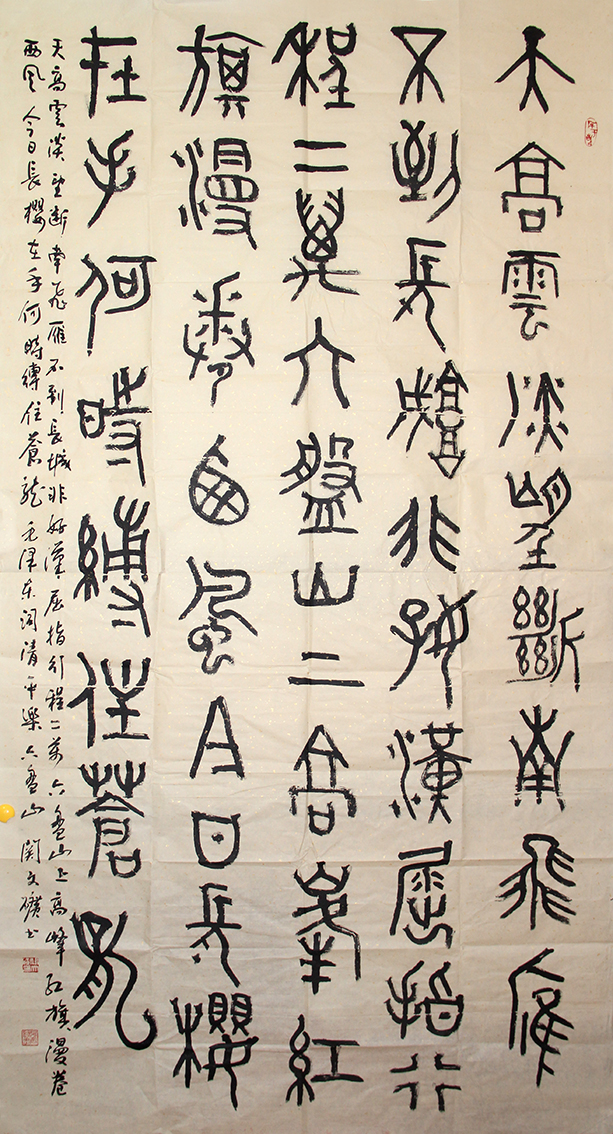 天高雲淡望斷南飛雁
不到長城非好漢屈指行
程二萬六盤山二高峯紅
旗漫卷西風今日長櫻
在手何時縛住蒼龍
天高雲淡望斷南飛雁不到長城非好漢屈指行程二萬六盘山上高峰红旗漫卷
西风今日長櫻在手何時縛住蒼龍毛泽东词清平樂六盘山関文礦书